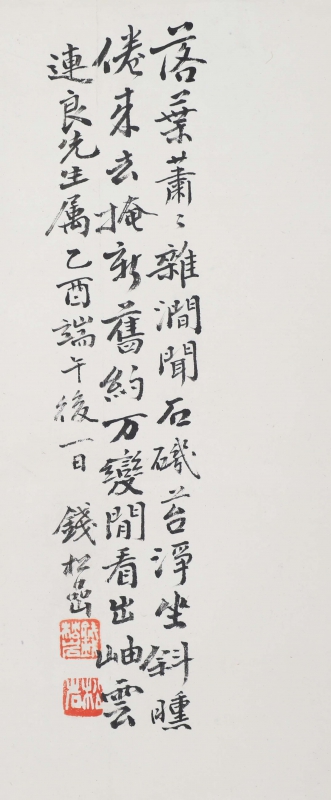 落葉蕭〻雜澗聞石磯苔淨坐斜曛
倦來去掩新舊約万變閒看出岫雲
連良先生属乙酉端午後一日 錢松喦